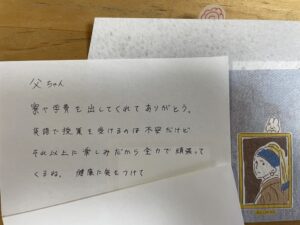 父ちゃん
寮や学費を出してくれてありがとう。
英語で授業を受けるのは不安だけど
それ以上に楽しみだから全力で頑張って
くるね。 健康に気をつけて